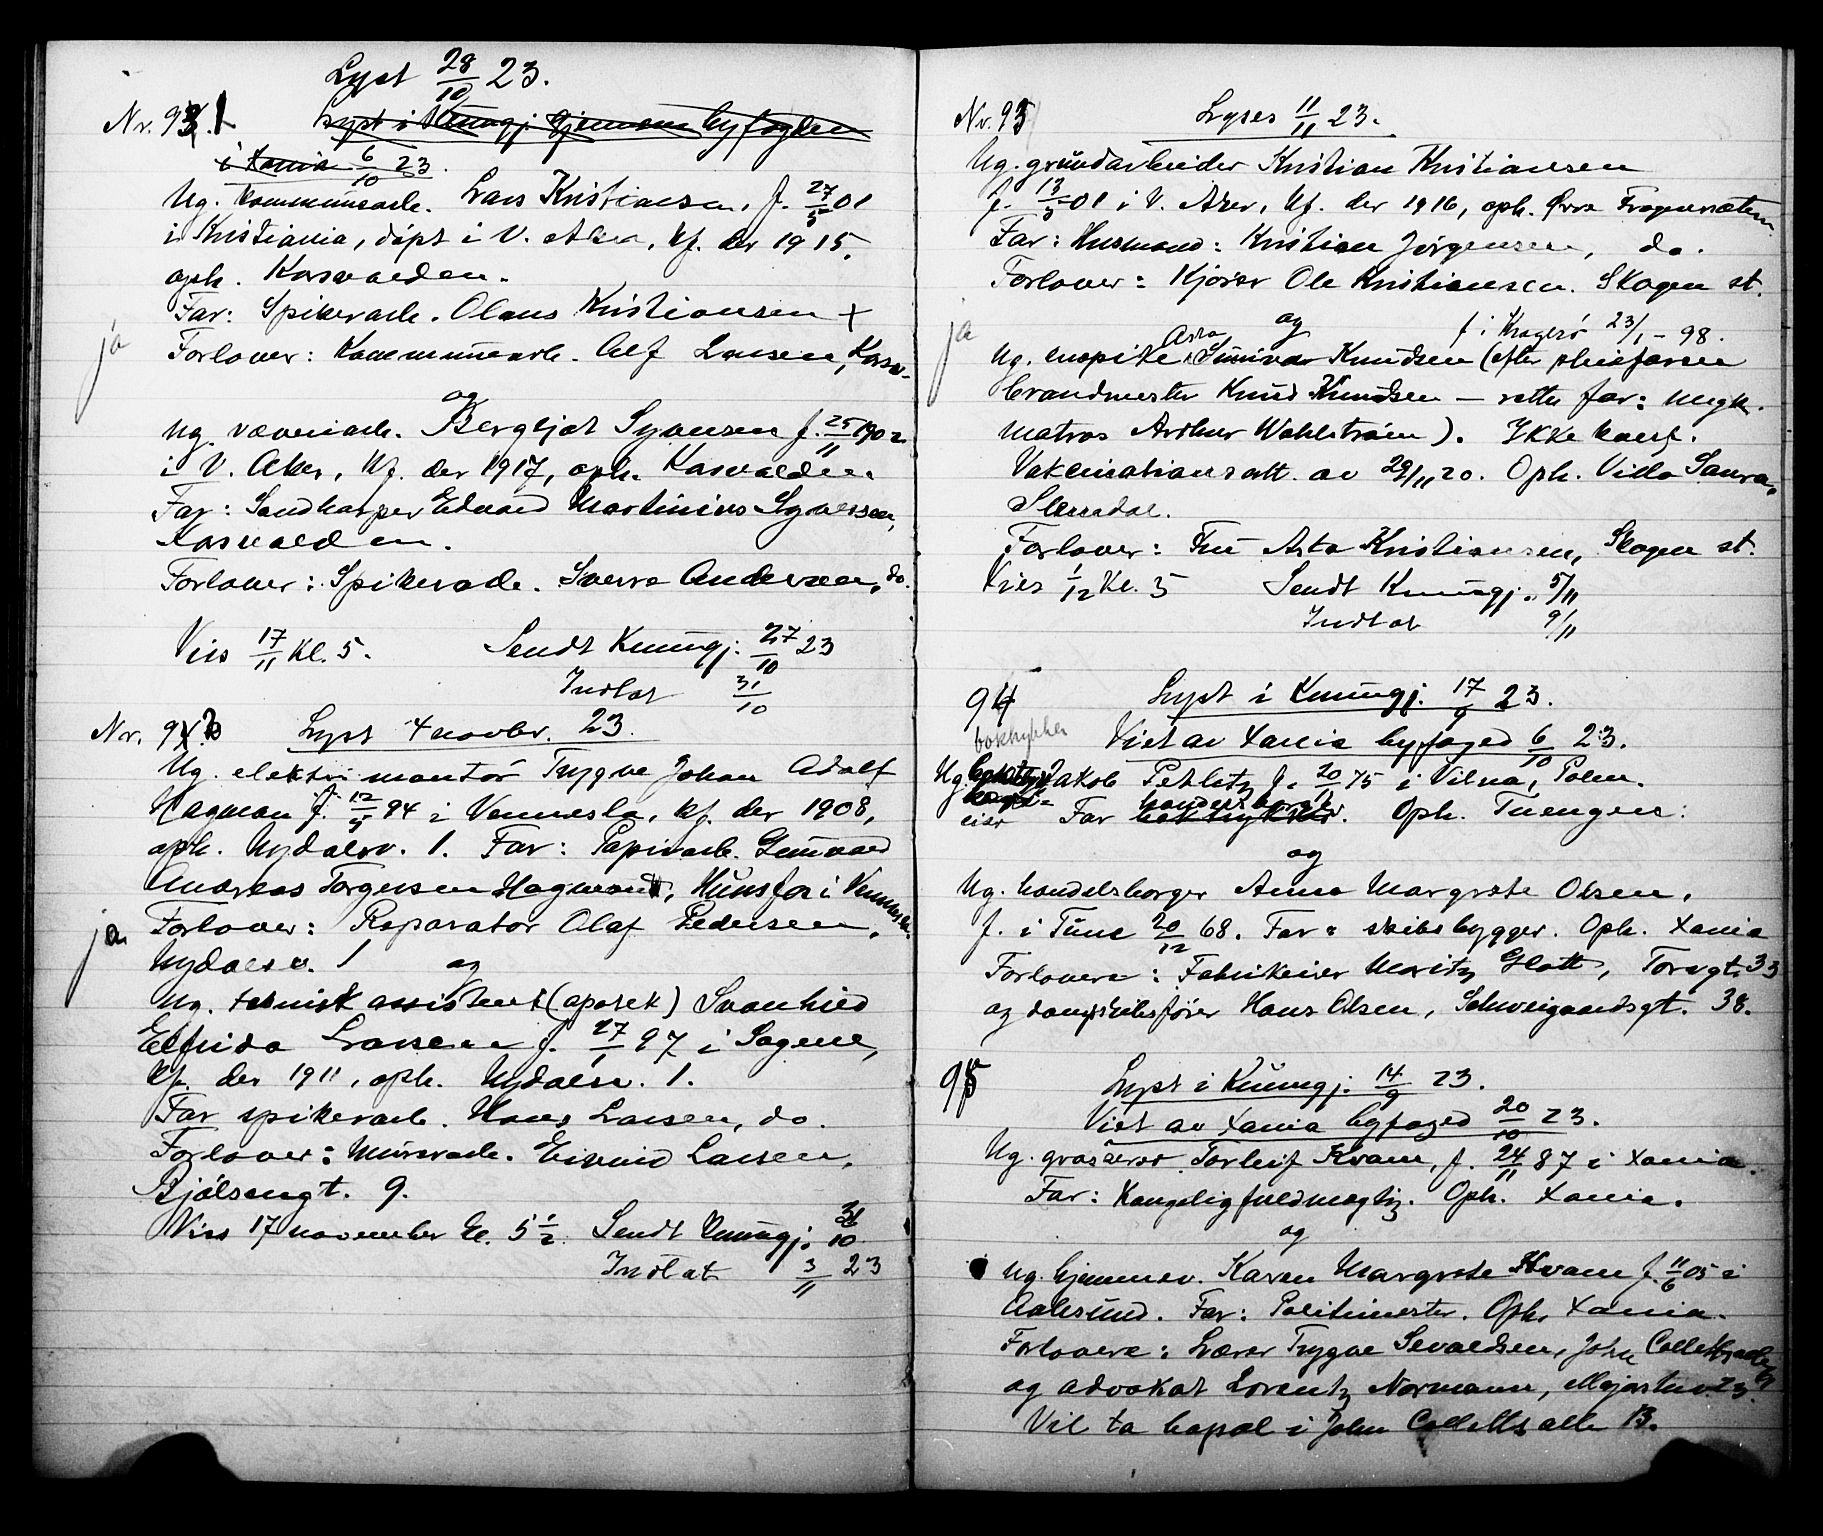 Lyst 28/10 23.
Nr. 91
Lyst i Kunngj. gjennem byfogden
i Xania 6/10 23.
Ug. kommunearb. Lars Kristiansen, f. 27/5 01
i Kristiania, døpt i V. Aker, kf. der 1915,
oph. Korsvolden.
Far: Spikerarb. Olaus Kristiansen +
ja
Forlover: Kommunearb. Alf Larsen, Korsv-
og
Ug. væveriarb. Bergljot Syversen f. 25/11 1902
i V. Aker, kf. der 1917, oph. Korsvolden.
Far: Sandharper Edvard Martinius Syversen,
Korsvolden.
Forlover: Spikerarb. Sverre Andersen, do.
Vies 17/11 Kl. 5. Sendt Kunngj. 27/10 23
Indtat 31/10
Nr. 92 Lyst 4 novbr. 23.
Ug. elektr. montør Trygve Johan Adolf
Hagman f. 12/5 94 i Vennesla, kf. der 1908,
oph. Nydalsv. 1. Far: Papirarb. Gunvald
Andreas Torgersen Hagman, Hunsfos i Vennesla.
ja
Forlover: Reparatør Olaf Pedersen,
Nydalsv. 1 og
Ug. teknisk assistent (apotek) Svanhild
Elfrida Larsen f. 27/1 97 i Sagene,
kf. der 1911, oph. Nydalsv. 1.
Far spikerarb. Hans Larsen, do.
Forlover: Murerarb. Eivind Larsen,
Bjølsengt. 9.
Vies 17 november kl. 5 1/2. Sendt Kunngj. 31/10
Indtat 3/11 23
Nr. 93 Lyses 11/11 23.
Ug. grundarbeider Kristian Kristiansen
f. 13/3 01 i V. Aker, kf. der 1916, oph. Øvre Frognersæteren
Far: Husmand: Kristian Jørgensen, do.
Forlover: Kjører Ole Kristiansen. Skogen st.
og f i Kragerø 23/1 - 98.
ja
Asta
Ug. hospite Sunniva Knudsen (efter pleiefaren
brandmester Knud Knudsen — rette far: Ungk.
Matros Arthur Wahlstrøm). Ikke konf.
Vakcinationsatt. av 29/11 20. Oph. Villa Saura,
Slemdal.
Forlover: Fru Asta Kristiansen, Skogen st.
Vies 1/12 Kl. 5 Sendt Kunngj. 5/11
Indtat 9/11
94 Lyst i Kunngj. 17/9 23.
boktrykker
Viet av Xania byfoged 6/10 23.
Ug. Jakob Petlitz f. 20/11 75 i Vilna, Polen.
eier Far handelsborger. Oph. Tuengen:
og
Ug. handelsborger Anna Margrete Olsen,
f. i Tune 20/12 68. Far: skibsbygger. Oph. Xania
Forlovere: Fabrikeier Moritz Glott, Torvgt. 33
og dampskibsfører Hans Olsen, Schweigaardsgt. 38.
95 Lyst i Kunngj. 14/9 23.
Viet av Xania byfoged 20/10 23.
Ug. grosserer Torleif Kvam, f. 24/11 87 i Xania.
Far: Kongelig fuldmægtig. Oph. Xania.
og
Ug. hjemmev. Karen Margrete Kvam f. 11/6 05 i
Aalesund. Far: Politimester. Oph. Xania.
Forlovere: Lærer Trygve Sevaldsen, John Colletts alle
og advokat Lorentz Normann, Majorstuv. 23.
Vil ta bopæl i John Colletts alle 13.